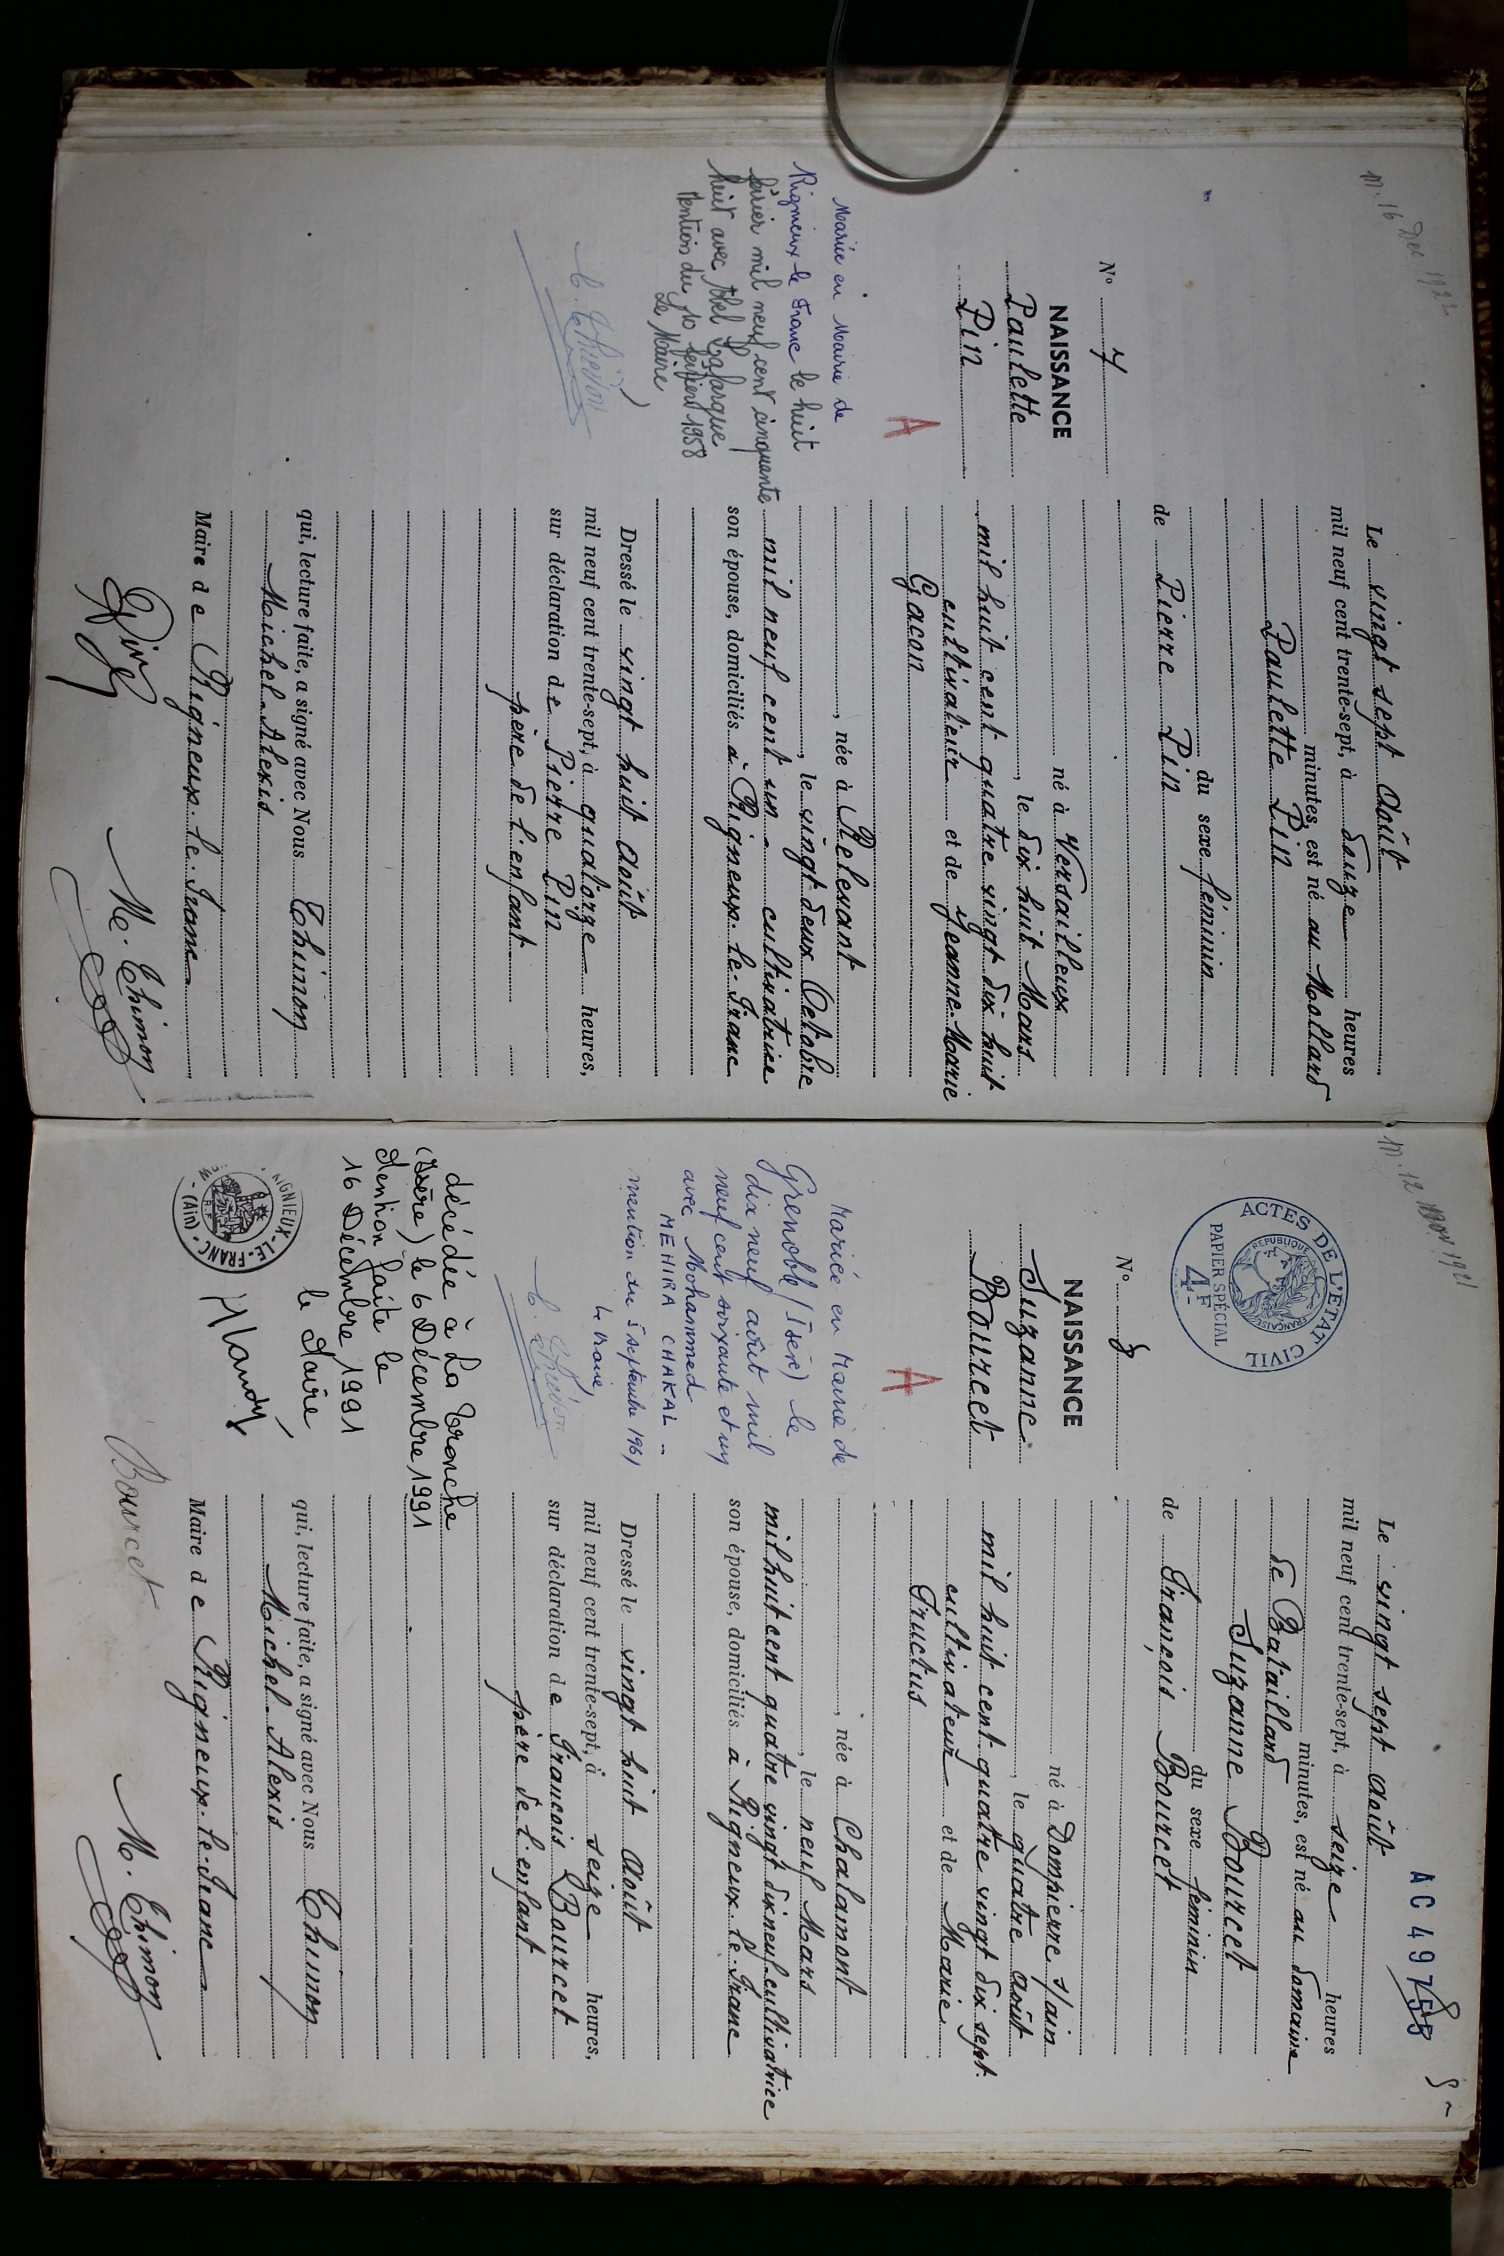 m. 16 Dec 1923
N° 7
NAISSANCE
Paulette
Pin
A
Mariée en Mairie de
Rigneux le Franc le huit
février mil neuf cent cinquante
huit avec Abel Lafargue
Mention du 10 février 1958
Le Maire
Le vingt sept Août
mil neuf cent trente-sept, à douze heures
minutes, est né au Mollard
Paulette Pin
du sexe féminin
de Pierre Pin
né à Versailleux
, le dix huit Mars
mil huit cent quatre vingt dix huit
cultivateur et de Jeanne-Marie
Gacon
, née à Relevant
, le vingt-deux Octobre
mil neuf cent un - cultivatrice
son épouse, domiciliés à Rigneux-le-Franc
Dressé le vingt huit Août
mil neuf cent trente-sept, à quatorze heures,
sur déclaration de Pierre Pin
père de l'enfant
qui, lecture faite, a signé avec Nous Thimon
Michel-Alexis
Maire de Rigneux-le-Franc
Pin
M. Thimon
m. 12 nov 1921
ACTES DE L'ÉTAT CIVIL
REPUBLIQUE FRANÇAISE
PAPIER SPÉCIAL
4F
AC 49758
N° 8
NAISSANCE
Suzanne
Bourcet
A
Mariée en Mairie de
Grenoble (Isère) le
dix neuf août mil
neuf cent soixante et un
avec Mohammed
MEHIRA CHAKAL -
mention du 5 septembre 1961
Le Maire,
décédée à La Tronche
(Isère) le 6 Décembre 1991
Mention faite le
16 Décembre 1991
le Maire
RIGNIEUX-LE-FRANC
R.F
(Ain)
Le vingt sept Août
mil neuf cent trente-sept, à seize heures
minutes, est né au domaine
de Bataillard
Suzanne Bourcet
du sexe féminin
de François Bourcet
né à Dompierre s/ain
, le quatre Août
mil huit cent quatre vingt dix sept
cultivateur et de Marie
Fructus
, née à Chalamont
, le neuf Mars
mil huit cent quatre vingt dix neuf cultivatrice
son épouse, domiciliés à Rigneux-le-Franc
Dressé le vingt huit Août
mil neuf cent trente-sept, à seize heures,
sur déclaration de François Bourcet
père de l'enfant
qui, lecture faite, a signé avec Nous Thimon
Michel-Alexis
Maire de Rigneux-le-Franc
Bourcet
M. Thimon